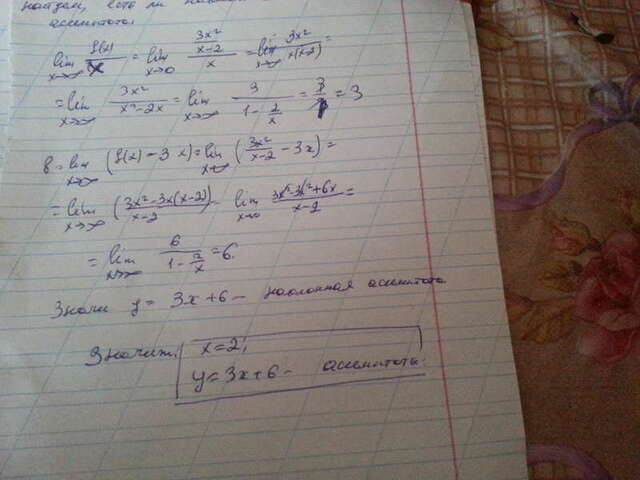 найдем, есть ли
асимптота.
lim x→∞ f(x)/x = lim x→∞ (3x²/(x-2))/x = lim x→∞ 3x²/(x(x-2)) =
= lim x→∞ 3x²/(x²-2x) = lim x→∞ 3/(1-2/x) = 3/1 = 3
b = lim x→∞ (f(x) - 3x) = lim x→∞ (3x²/(x-2) - 3x) =
= lim x→∞ (3x²-3x(x-2))/(x-2) = lim x→∞ (3x²-3x²+6x)/(x-2) =
= lim x→∞ 6/(1-2/x) = 6.
Значи y = 3x+6 - наклонная асимптота
Значит, x=2;
y=3x+6 - асимптоты.